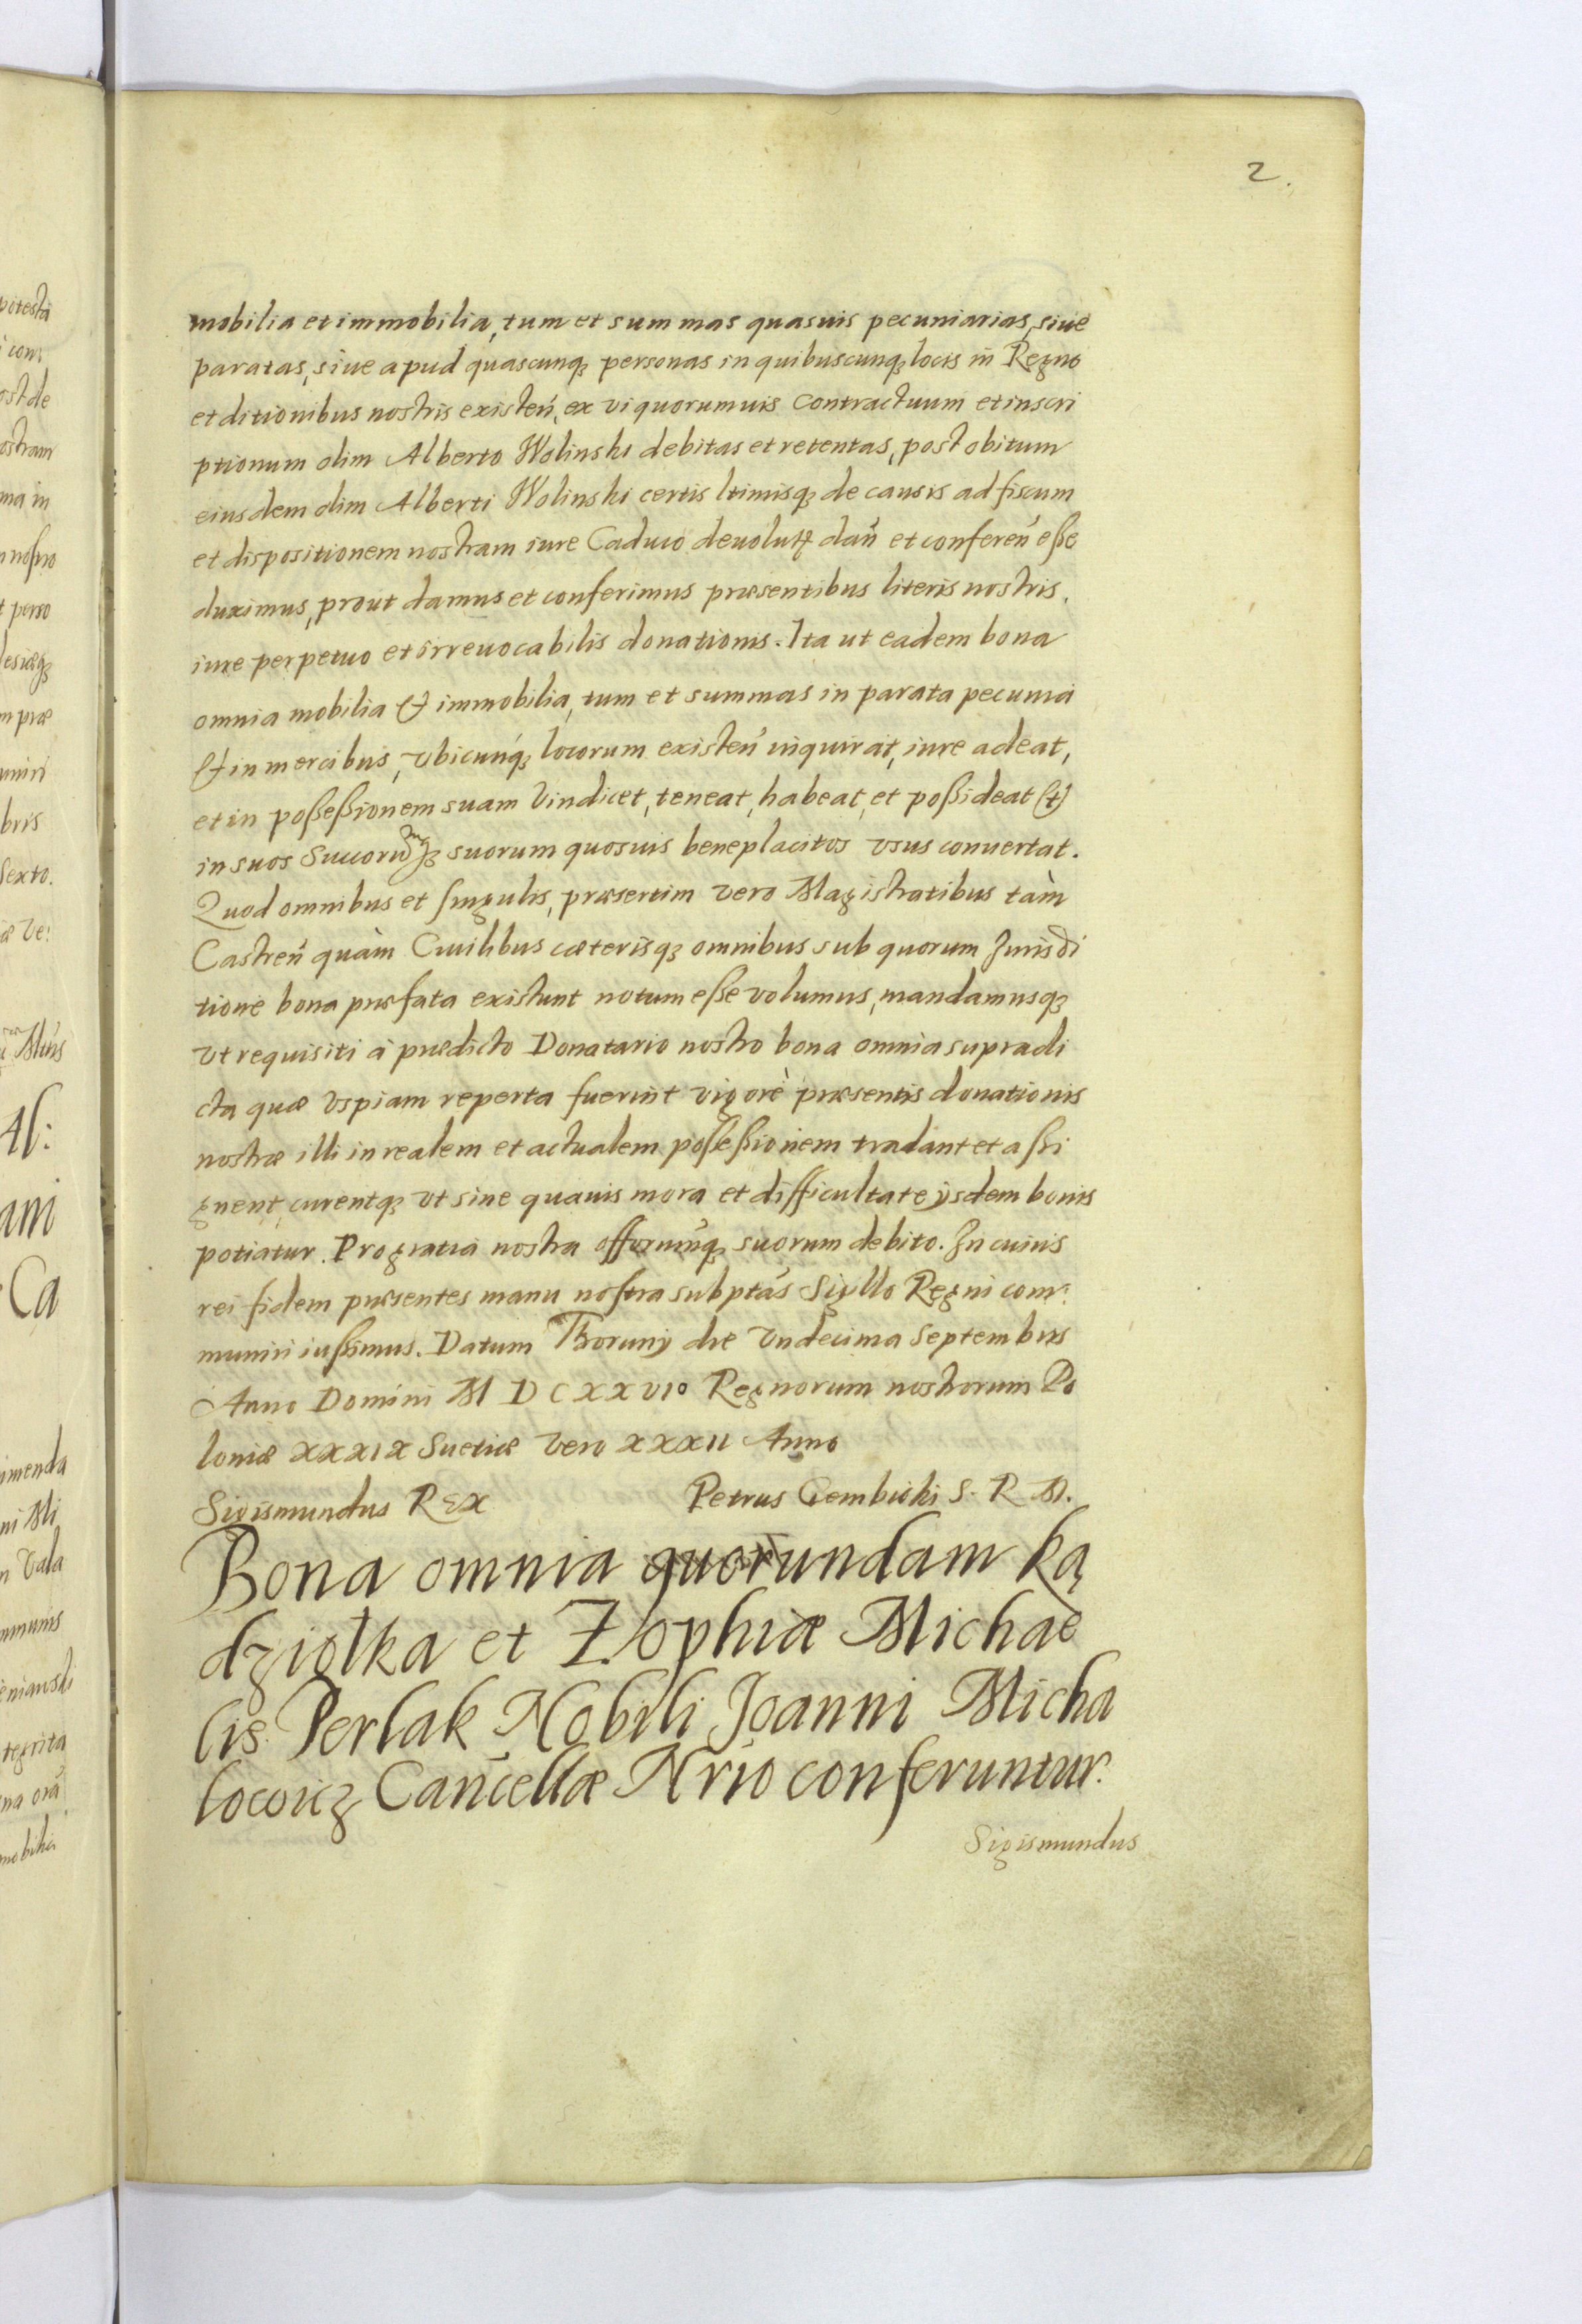 2.
mobilia et immobilia, tum et summas quasuis pecuniarias, siue
paratas, siue apud quascunq₃ personas in quibuscunq₃ locis in Regno
et ditionibus nostris existeń, ex vi quorumuis contractuum et inscri
ptionum olim Alberto Wolinski debitas et retentas, post obitum
eiusdem olim Alberti Wolinski certis ltimisq₃ de causis ad fiscum
et dispositionem nostram iure Caduco deuolut dań et confereń eße
duximus, prout damus et conferimus præsentibus literis nostris.
iure perpetuo et irreuocabilis donationis. Ita ut eadem bona
omnia mobilia et immobilia, tum et summas in parata pecunia
et in mercibus, vbicunq₃ locorum existeń inquirat, iure adeat,
et in poßeßionem suam vindicet, teneat, habeat, et poßideat et
in suos suorum quosuis beneplacitos vsus conuertat.
Quod omnibus et singulis, præsertim vero Magistratibus tàm
Castreń quàm Ciuilibus cæterisq₃ omnibus sub quorum Jurisdi
tione bona præfata existunt notum eße volumus, mandamusq₃
vt requisiti à prædicto Donatario nostro bona omnia supradi
cta quæ vspiam reperta fuerint vigore præsentis donationis
nostræ illi in realem et actualem poßeßionem tradant et aßi
gnent, curentq₃ vt sine quauis mora et difficultate ijsdem bonis
potiatur. Pro gratia nostra offorumq₃ suorum debito. In cuius
rei fidem præsentes manu nostra subptás Sigillo Regni com
muniri iußimus. Datum Thorunij die vndecima Septembris
Anno Domini M D C XX VIo Regnorum nostrorum Po
loniæ XXXIX Suetiæ vero XXXII Anno
Sigismundus REX Petrus Gembicki S. R. M.
Bona omnia quorundam Ką
dziołka et Zophiæ Michae
lis Perlak Nobili Joanni Micha
lowicz Cancellæ Nrio conferuntur.
Sigismundus